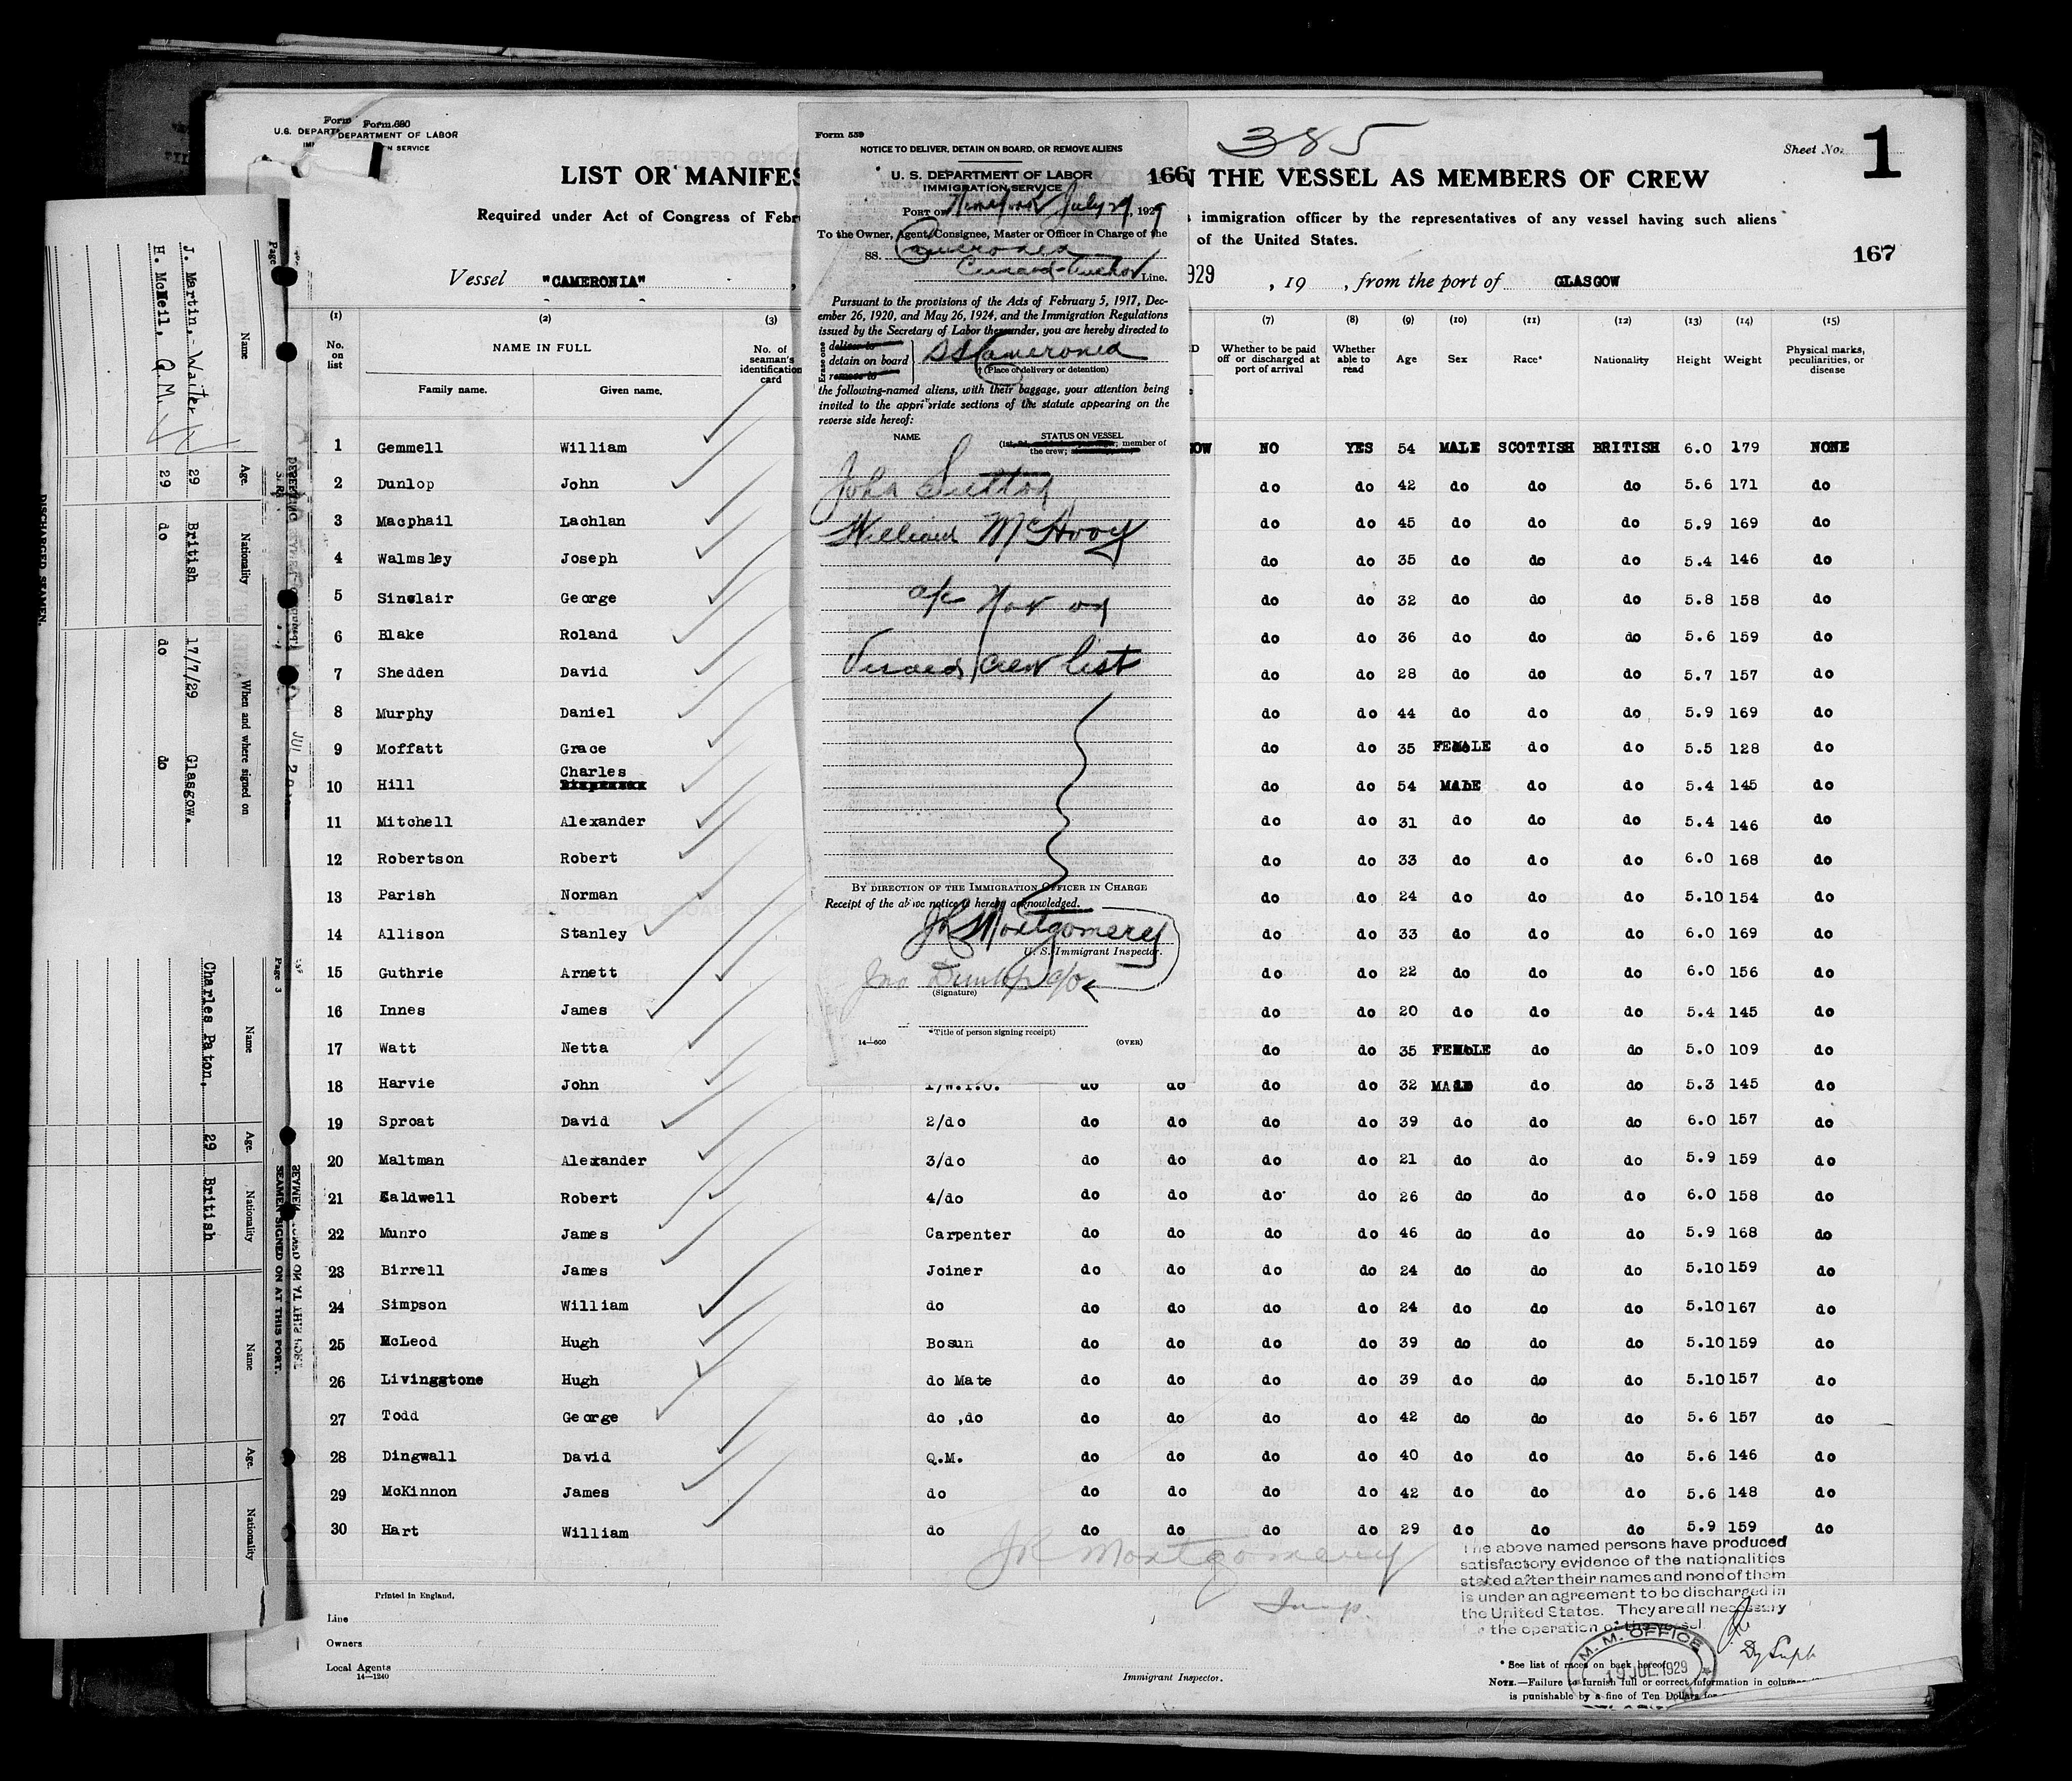 Form 680
U.S. DEPARTMENT OF LABOR
SERVICE
385
Sheet No. 1
LIST OR MANIFES
N THE VESSEL AS MEMBERS OF CREW
166
Required under Act of Congress of Febru
immigration officer by the representatives of any vessel having such aliens
of the United States.
167
Vessel "CAMERONIA"
929 , 19 , from the port of GLASGOW
Form 559
NOTICE TO DELIVER, DETAIN ON BOARD, OR REMOVE ALIENS
U. S. DEPARTMENT OF LABOR
IMMIGRATION SERVICE
PORT OF New York July 29, 1929
To the Owner, Agent, Consignee, Master or Officer in Charge of the
SS. Cameronia
Cunard-Anchor Line.
Pursuant to the provisions of the Acts of February 5, 1917, Dec-
ember 26, 1920, and May 26, 1924, and the Immigration Regulations
issued by the Secretary of Labor thereunder, you are hereby directed to
Erase one
deliver to
detain on board
remove to
SS Cameronia
† (Place of delivery or detention)
the following-named aliens, with their baggage, your attention being
invited to the appropriate sections of the statute appearing on the
reverse side hereof:
NAME. STATUS ON VESSEL
member of
the crew;
John Sutton
William McHvoy
a/c Not on
Visaed crew list
BY DIRECTION OF THE IMMIGRATION OFFICER IN CHARGE
Receipt of the above notice is hereby acknowledged.
JR Montgomery
U. S. Immigrant Inspector.
Jno Dunlop c/o
(Signature)
*Title of person signing receipt)
14—600 (OVER)
(1) (2) (3) (7) (8) (9) (10) (11) (12) (13) (14) (15)
No. on list
NAME IN FULL
Family name. Given name.
No. of seaman's identification card
Whether to be paid off or discharged at port of arrival
Whether able to read
Age Sex Race* Nationality Height Weight
Physical marks, peculiarities, or disease
1 Gemmell William OW NO YES 54 MALE SCOTTISH BRITISH 6.0 179 NONE
2 Dunlop John do do 42 do do do 5.6 171 do
3 Macphail Lachlan do do 45 do do do 5.9 169 do
4 Walmsley Joseph do do 35 do do do 5.4 146 do
5 Sinclair George do do 32 do do do 5.8 158 do
6 Blake Roland do do 36 do do do 5.6 159 do
7 Shedden David do do 28 do do do 5.7 157 do
8 Murphy Daniel do do 44 do do do 5.9 169 do
9 Moffatt Grace do do 35 FEMALE do do 5.5 128 do
10 Hill Charles do do 54 MALE do do 5.4 145 do
11 Mitchell Alexander do do 31 do do do 5.4 146 do
12 Robertson Robert do do 33 do do do 6.0 168 do
13 Parish Norman do do 24 do do do 5.10 154 do
14 Allison Stanley do do 33 do do do 6.0 169 do
15 Guthrie Arnett do do 22 do do do 6.0 156 do
16 Innes James do do 20 do do do 5.4 145 do
17 Watt Netta do do 35 FEMALE do do 5.0 109 do
18 Harvie John 1/W.T.O. do do do do 32 MALE do do 5.3 145 do
19 Sproat David 2/do do do do do 39 do do do 6.0 157 do
20 Maltman Alexander 3/do do do do do 21 do do do 5.9 159 do
21 Caldwell Robert 4/do do do do do 26 do do do 6.0 158 do
22 Munro James Carpenter do do do do 46 do do do 5.9 168 do
23 Birrell James Joiner do do do do 24 do do do 5.10 159 do
24 Simpson William do do do do do 24 do do do 5.10 167 do
25 McLeod Hugh Bosun do do do do 39 do do do 5.10 159 do
26 Livingstone Hugh do Mate do do do do 39 do do do 5.10 157 do
27 Todd George do ,do do do do do 42 do do do 5.6 157 do
28 Dingwall David Q.M. do do do do 40 do do do 5.6 146 do
29 McKinnon James do do do do do 42 do do do 5.6 148 do
30 Hart William do do do do do 29 do do do 5.9 159 do
JR Montgomery
Insp.
The above named persons have produced
satisfactory evidence of the nationalities
stated after their names and none of them
is under an agreement to be discharged in
the United States. They are all necessary
the operation of the vessel.
Printed in England.
Line
Owners
Local Agents
14—1240
Immigrant Inspector.
M. M. OFFICE
19 JUL 1929
* See list of races on back hereof.
NOTE.—Failure to furnish full or correct information in colum
is punishable by a fine of Ten Dollars for
DISCHARGED SEAMEN.
Page
Name Age. Nationality When and where signed on
J. Martin,- Waiter 29 British 17/7/29 Glasgow.
H. McNeil, Q.M. 29 do do do
SEAMEN SIGNED ON AT THIS PORT.
Page 3
Name Age. Nationality Name Age. Nationality
Charles Paton, 29 British